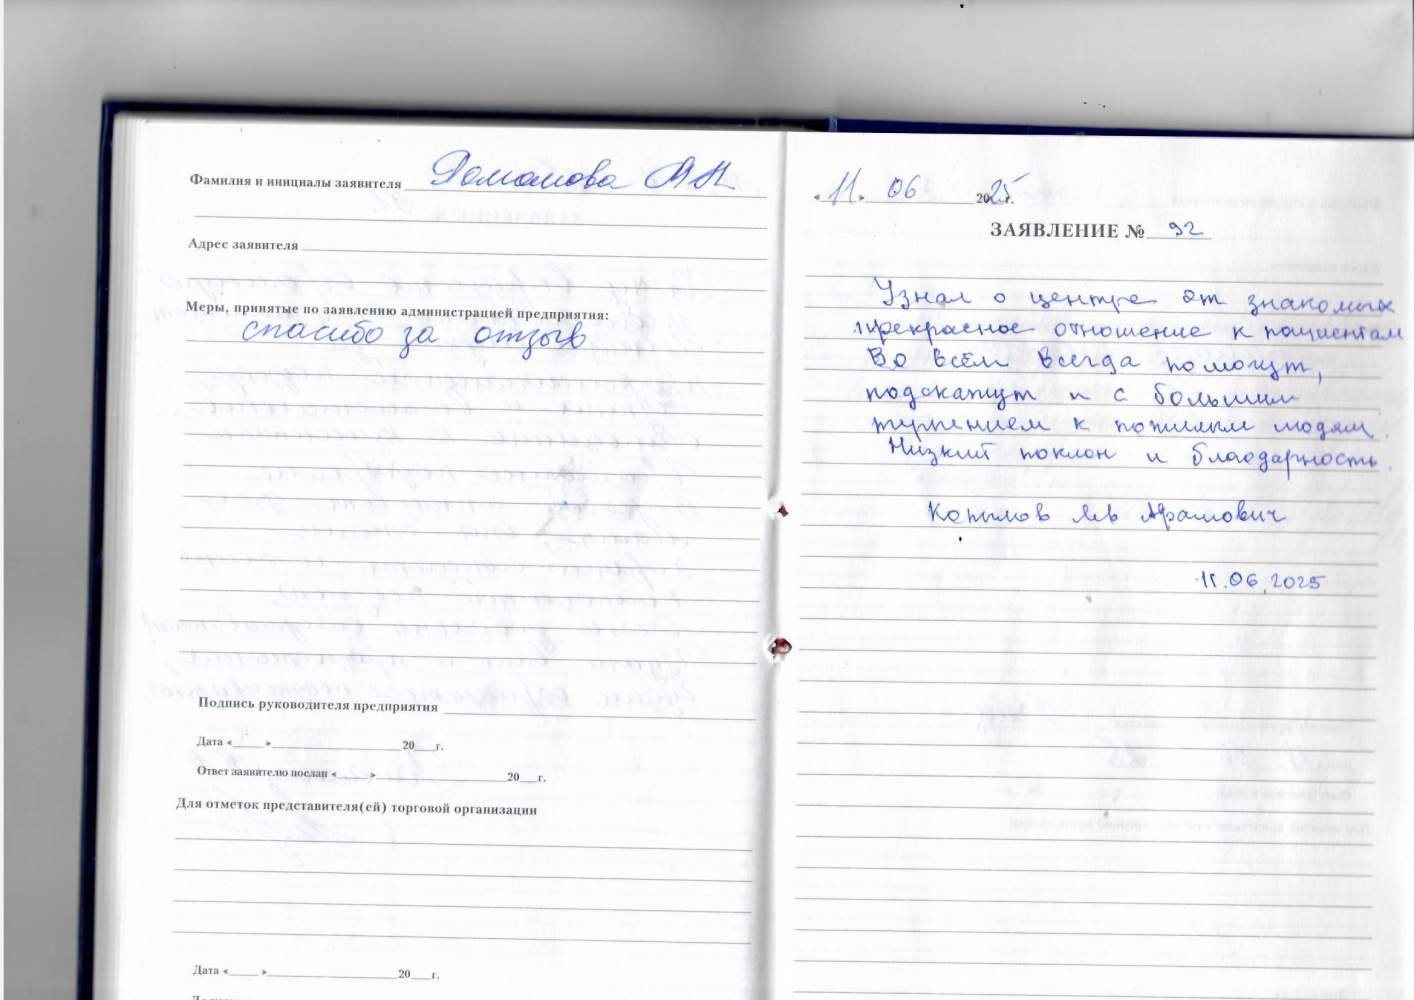 Фамилия и инициалы заявителя Романова А Н
Адрес заявителя
Меры, принятые по заявлению администрацией предприятия:
спасибо за отзыв
Подпись руководителя предприятия
Дата «____» ____ 20__г.
Ответ заявителю послан «____» ____ 20__г.
Для отметок представителя(ей) торговой организации
Дата «____» ____ 20__г.
«11» 06 2025г.
ЗАЯВЛЕНИЕ № 92
Узнал о центре от знакомых
прекрасное отношение к пациентам
Во всём всегда помогут,
подскажут и с большим
терпением к пожилым людям.
Низкий поклон и благодарность.
Копылов Лев Арамович
11.06.2025